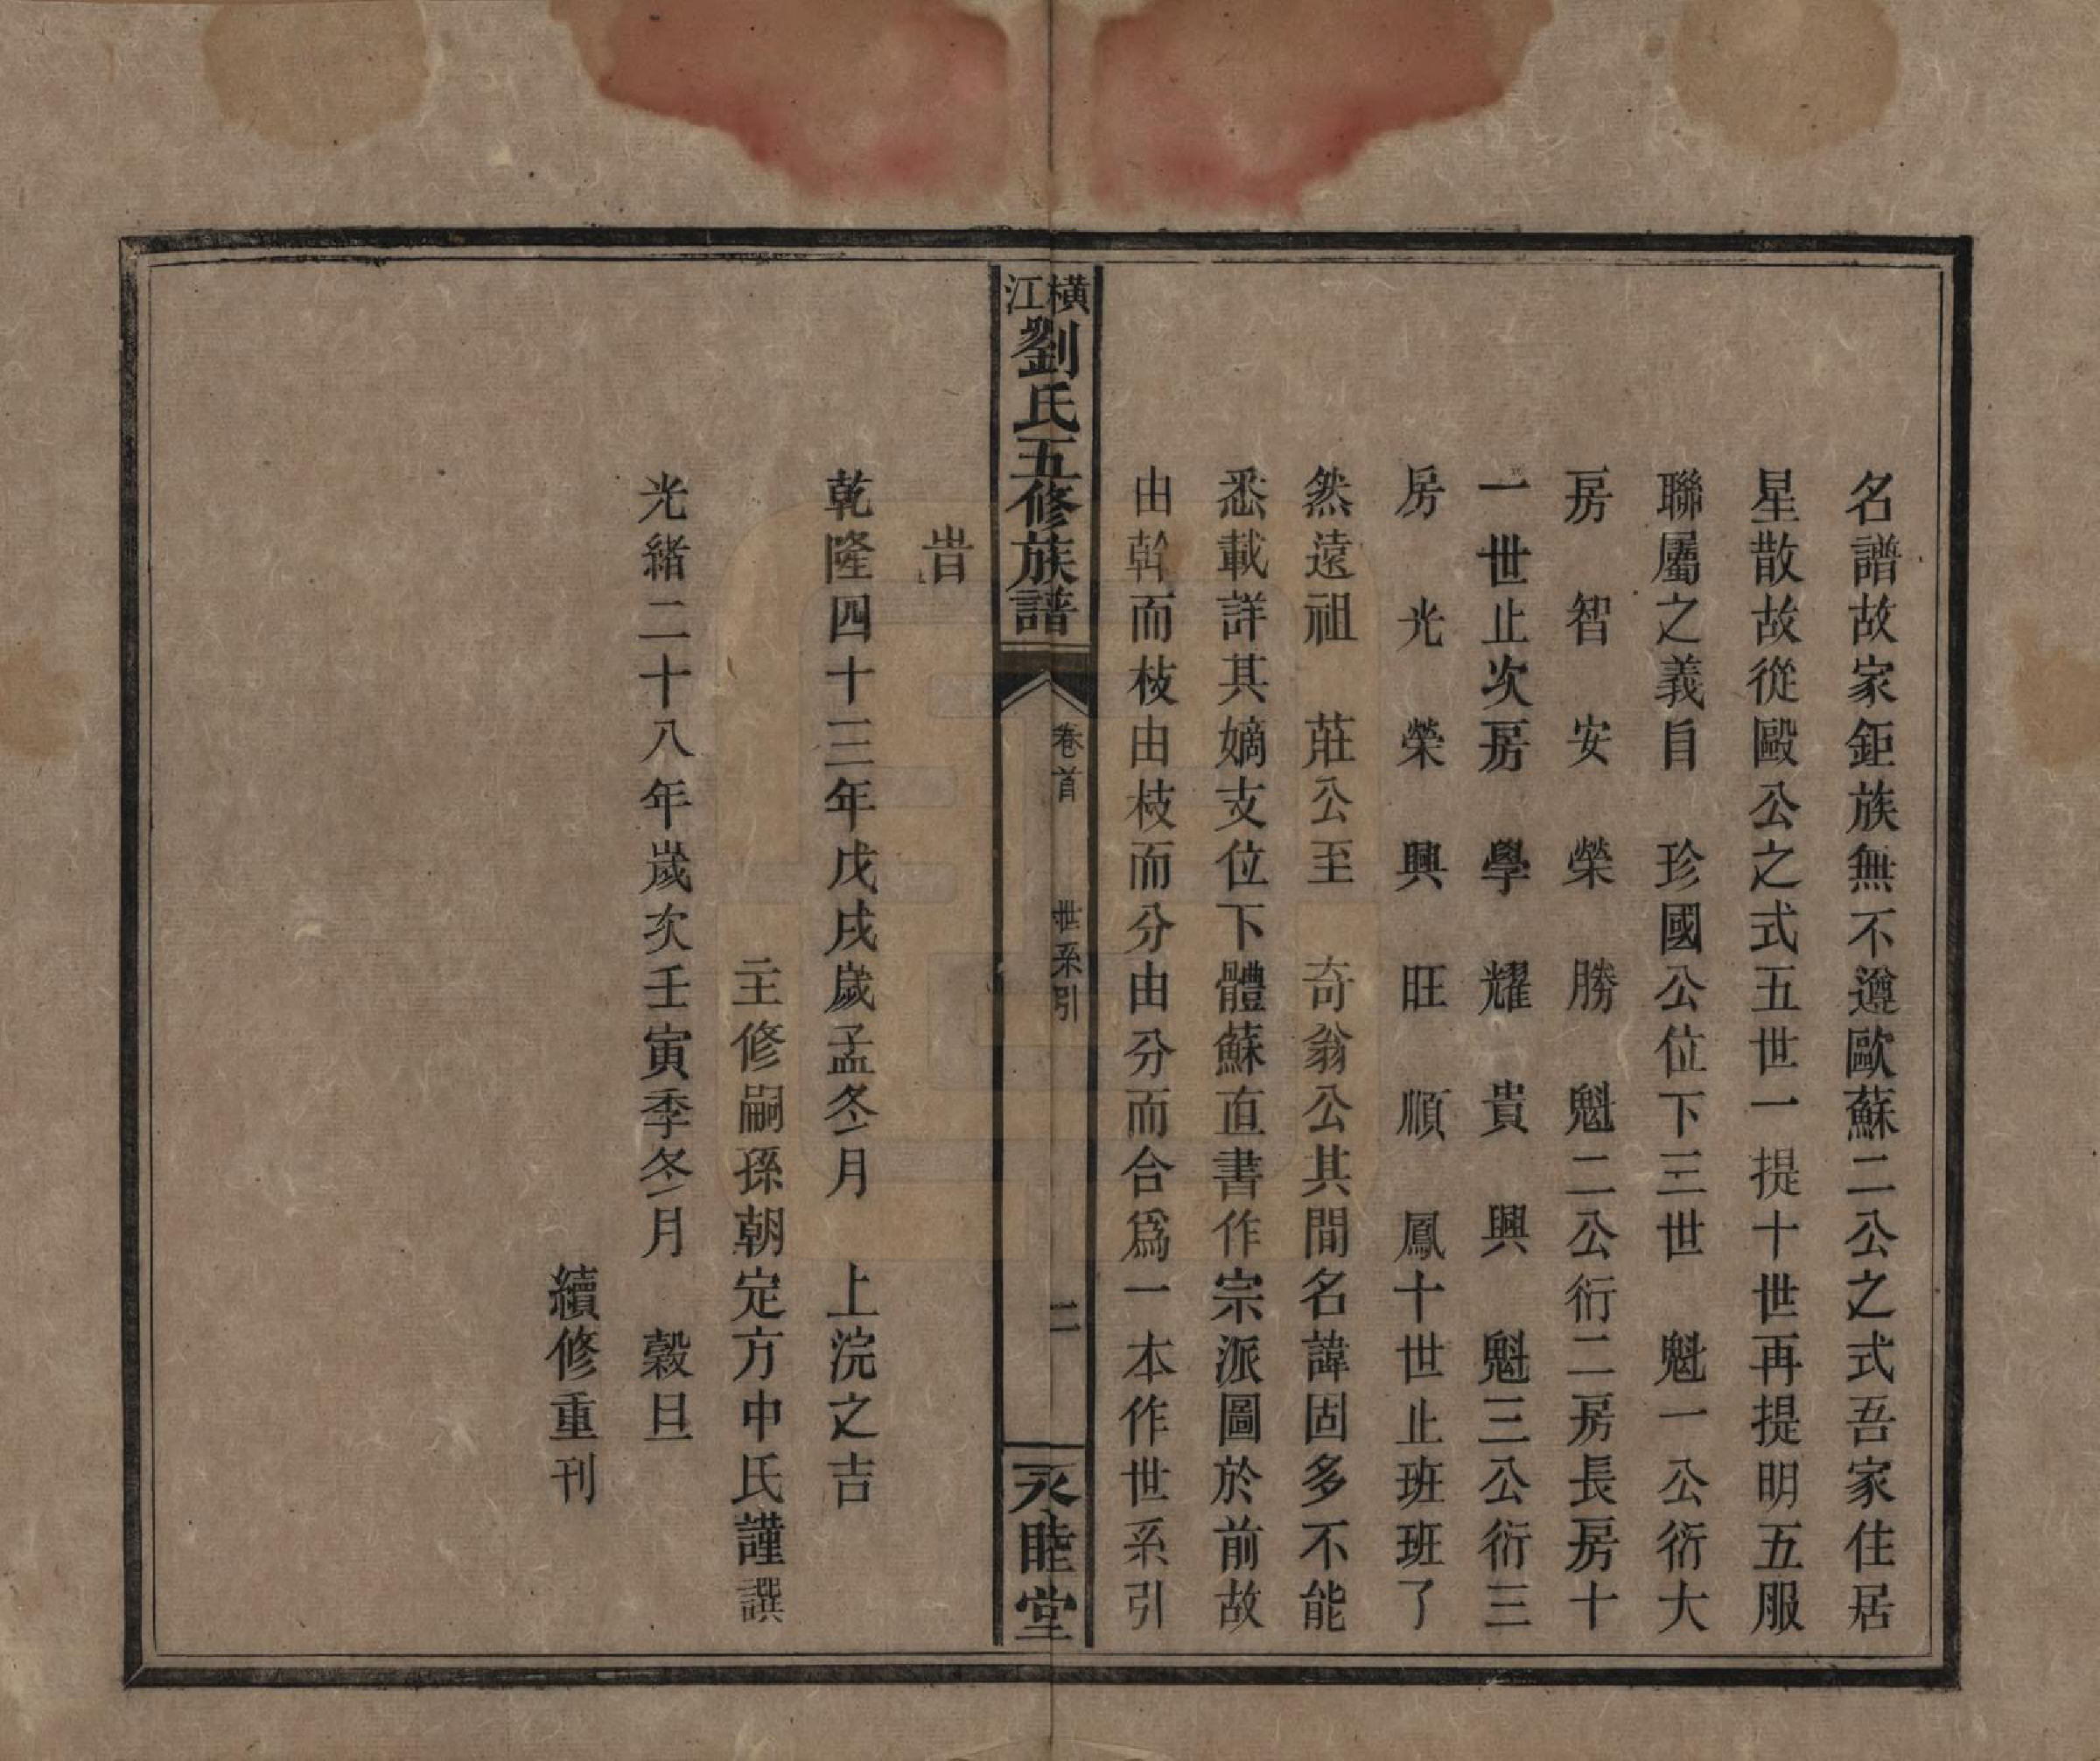 名譜故家鉅族無不遵歐蘇二公之式吾家住居
星散故從歐公之式五世一提十世再提明五服
聯屬之義自　珍國公位下三世　魁一公衍大
房　智　安　榮　勝　魁二公衍二房長房十
一世止次房　學　耀　貴　興　魁三公衍三
房　光　榮　興　旺　順　鳳十世止班班了
然遠祖　莊公至　奇翁公其間名諱固多不能
悉載詳其嫡支位下體蘇直書作宗派圖於前故
由幹而枝由枝而分由分而合爲一本作世系引
橫江劉氏五修族譜
卷首　世系引　二
永睦堂
旹
乾隆四十三年戊戌歲孟冬月　上浣之吉
主修嗣孫朝定方中氏謹譔
光緒二十八年歲次壬寅季冬月　穀旦
續修重刊